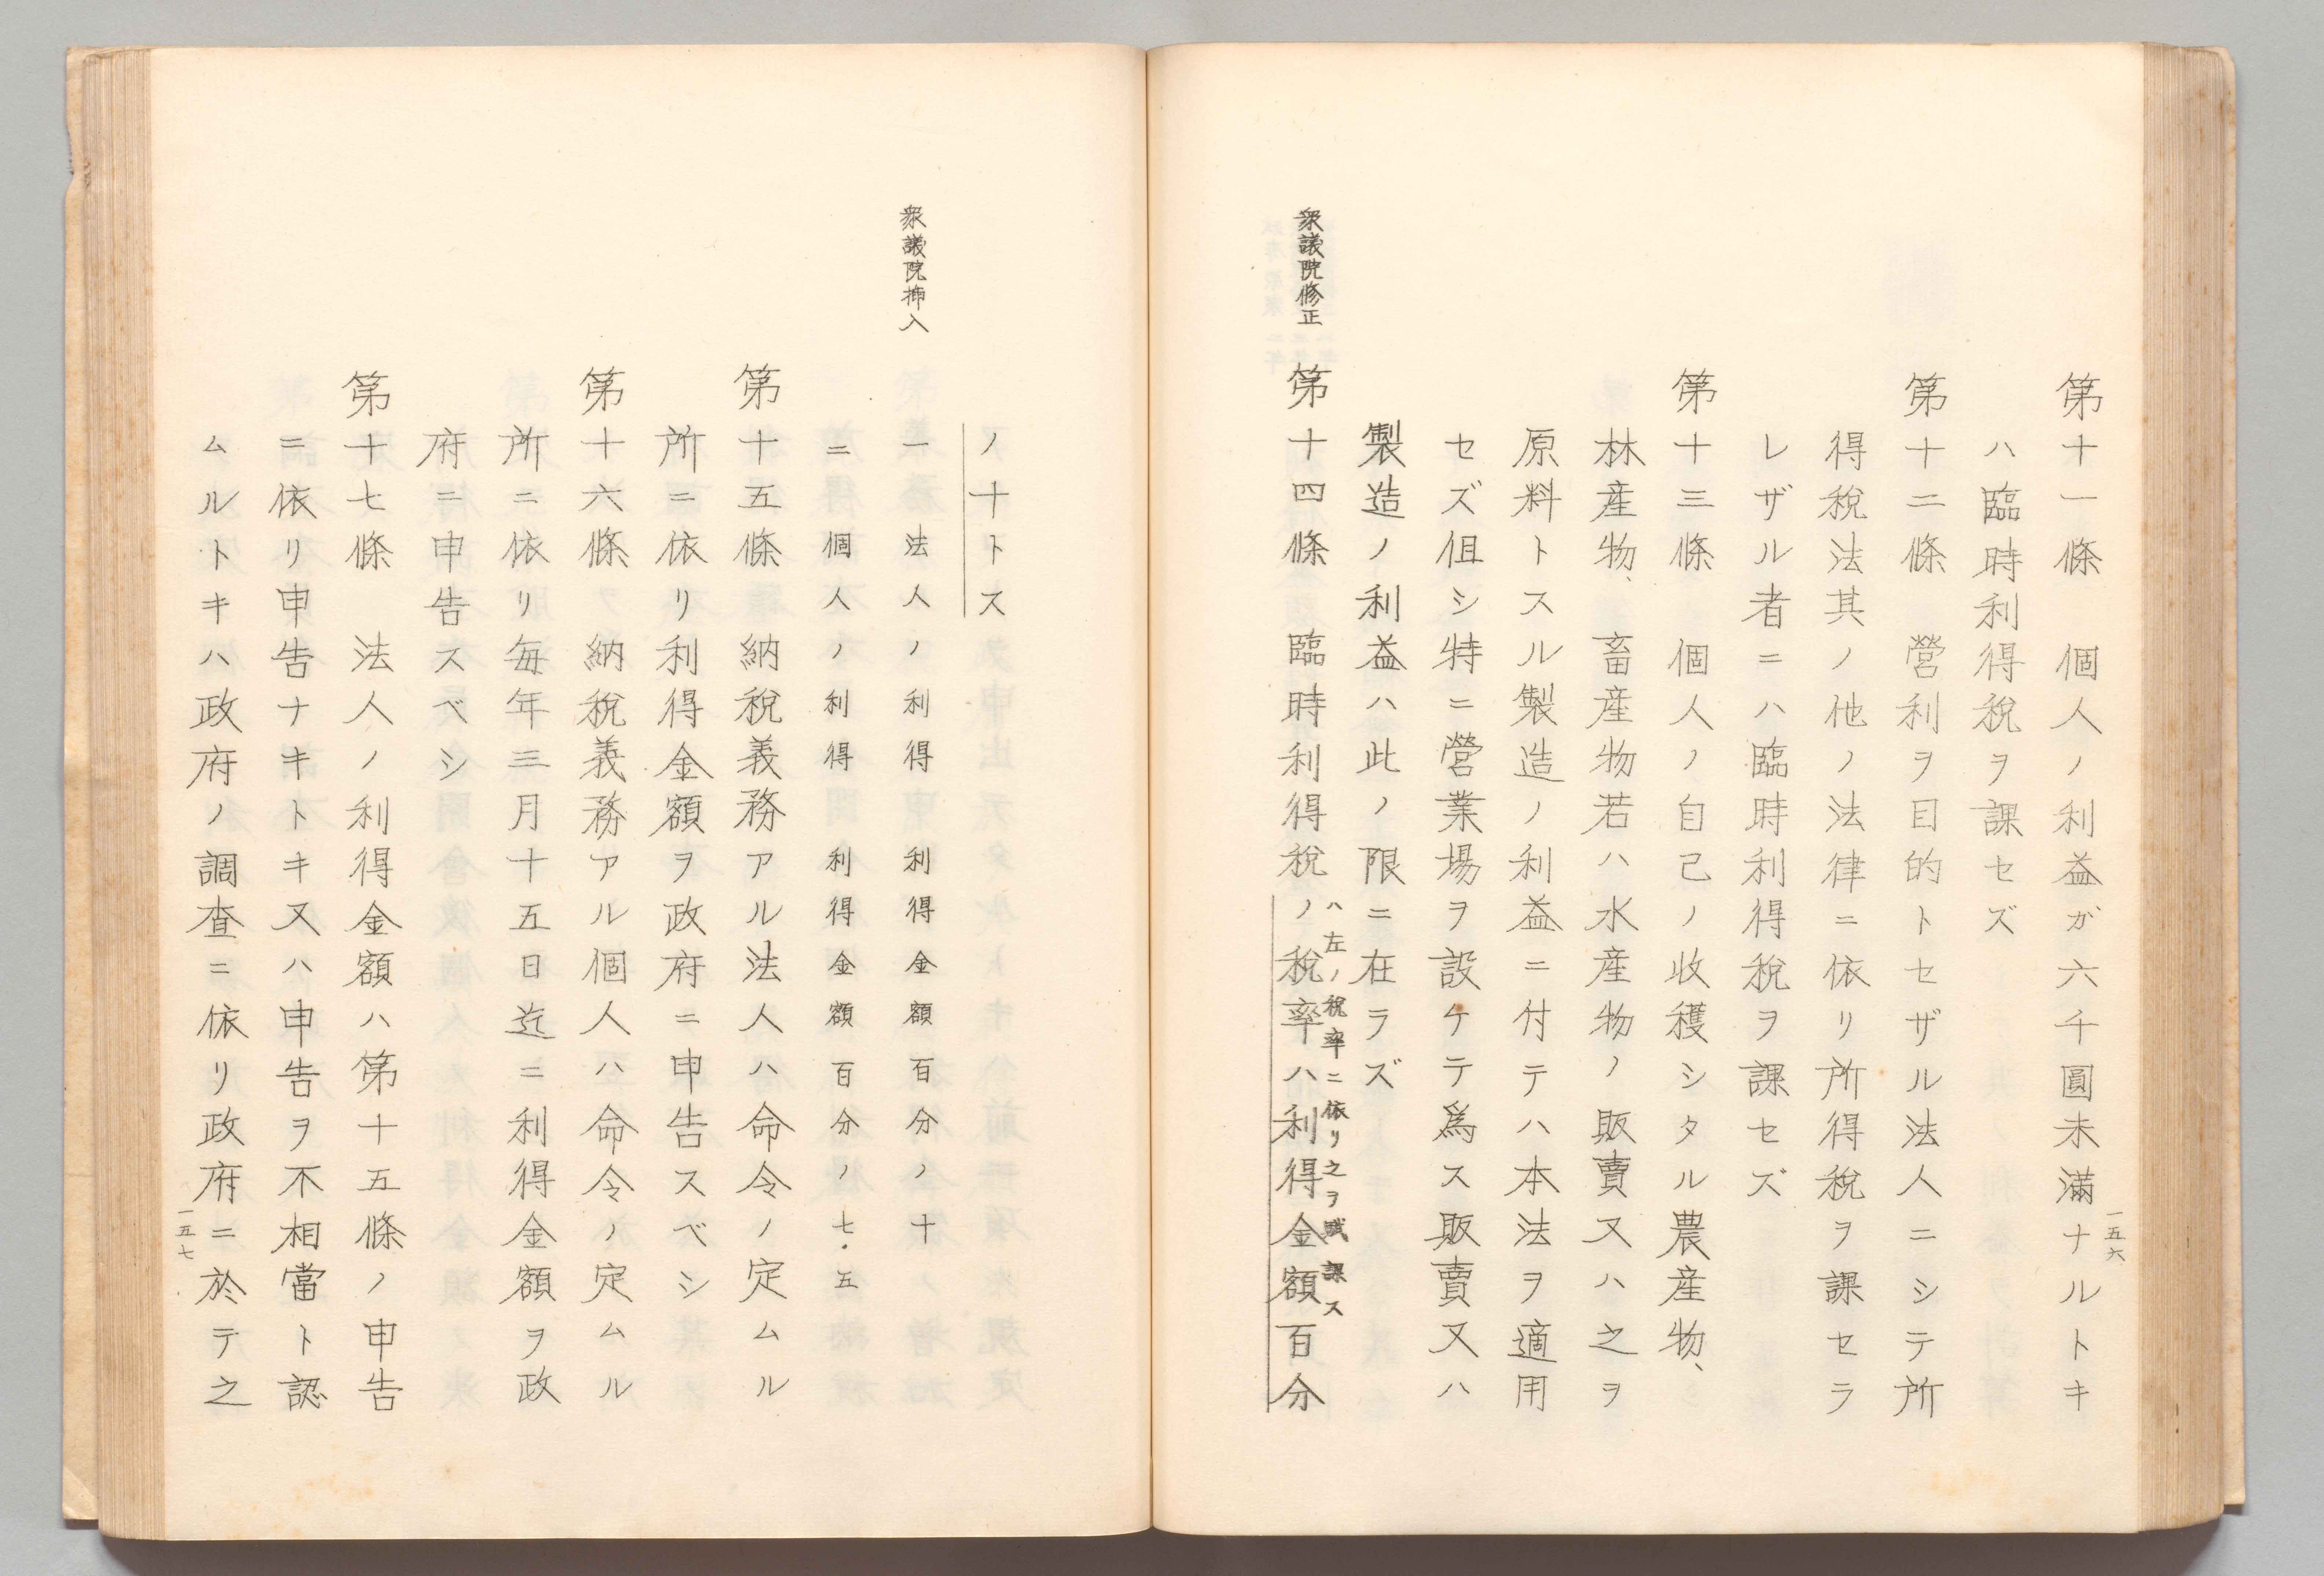 第十一條　個人ノ利益ガ六千圓未滿ナルトキ
ハ臨時利得稅ヲ課セズ
第十二條　營利ヲ目的トセザル法人ニシテ所
得稅法其ノ他ノ法律ニ依リ所得稅ヲ課セラ
レザル者ニハ臨時利得稅ヲ課セズ
第十三條　個人ノ自己ノ收穫シタル農產物、
林產物、畜產物若ハ水產物ノ販賣又ハ之ヲ
原料トスル製造ノ利益ニ付テハ本法ヲ適用
セズ但シ特ニ營業場ヲ設ケテ爲ス販賣又ハ
製造ノ利益ハ此ノ限ニ在ラズ
衆議院修正
ハ左ノ稅率ニ依リ之ヲ賦課ス
第十四條　臨時利得稅ノ稅率ハ利得金額百分
一五六
ノ十トス
衆議院揷入
一　法人ノ利得　利得金額百分ノ十
二　個人ノ利得　利得金額百分ノ七・五
第十五條　納稅義務アル法人ハ命令ノ定ムル
所ニ依リ利得金額ヲ政府ニ申告スベシ
第十六條　納稅義務アル個人ハ命令ノ定ムル
所ニ依リ每年三月十五日迄ニ利得金額ヲ政
府ニ申告スベシ
第十七條　法人ノ利得金額ハ第十五條ノ申告
ニ依リ申告ナキトキ又ハ申告ヲ不相當ト認
ムルトキハ政府ノ調査ニ依リ政府ニ於テ之
一五七